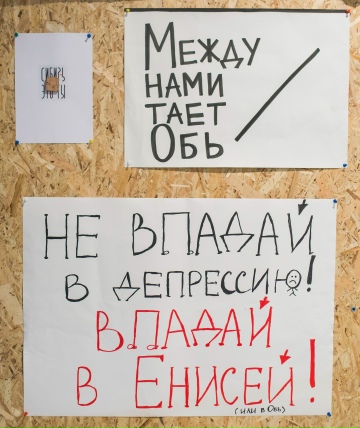 СИБИРЬ
МЕЖДУ
НАМИ
ТАЕТ
ОБЬ
НЕ ВПАДАЙ
В ДЕПРЕССИЮ!
ВПАДАЙ
В ЕНИСЕЙ!
(ИЛИ В ОБЬ)